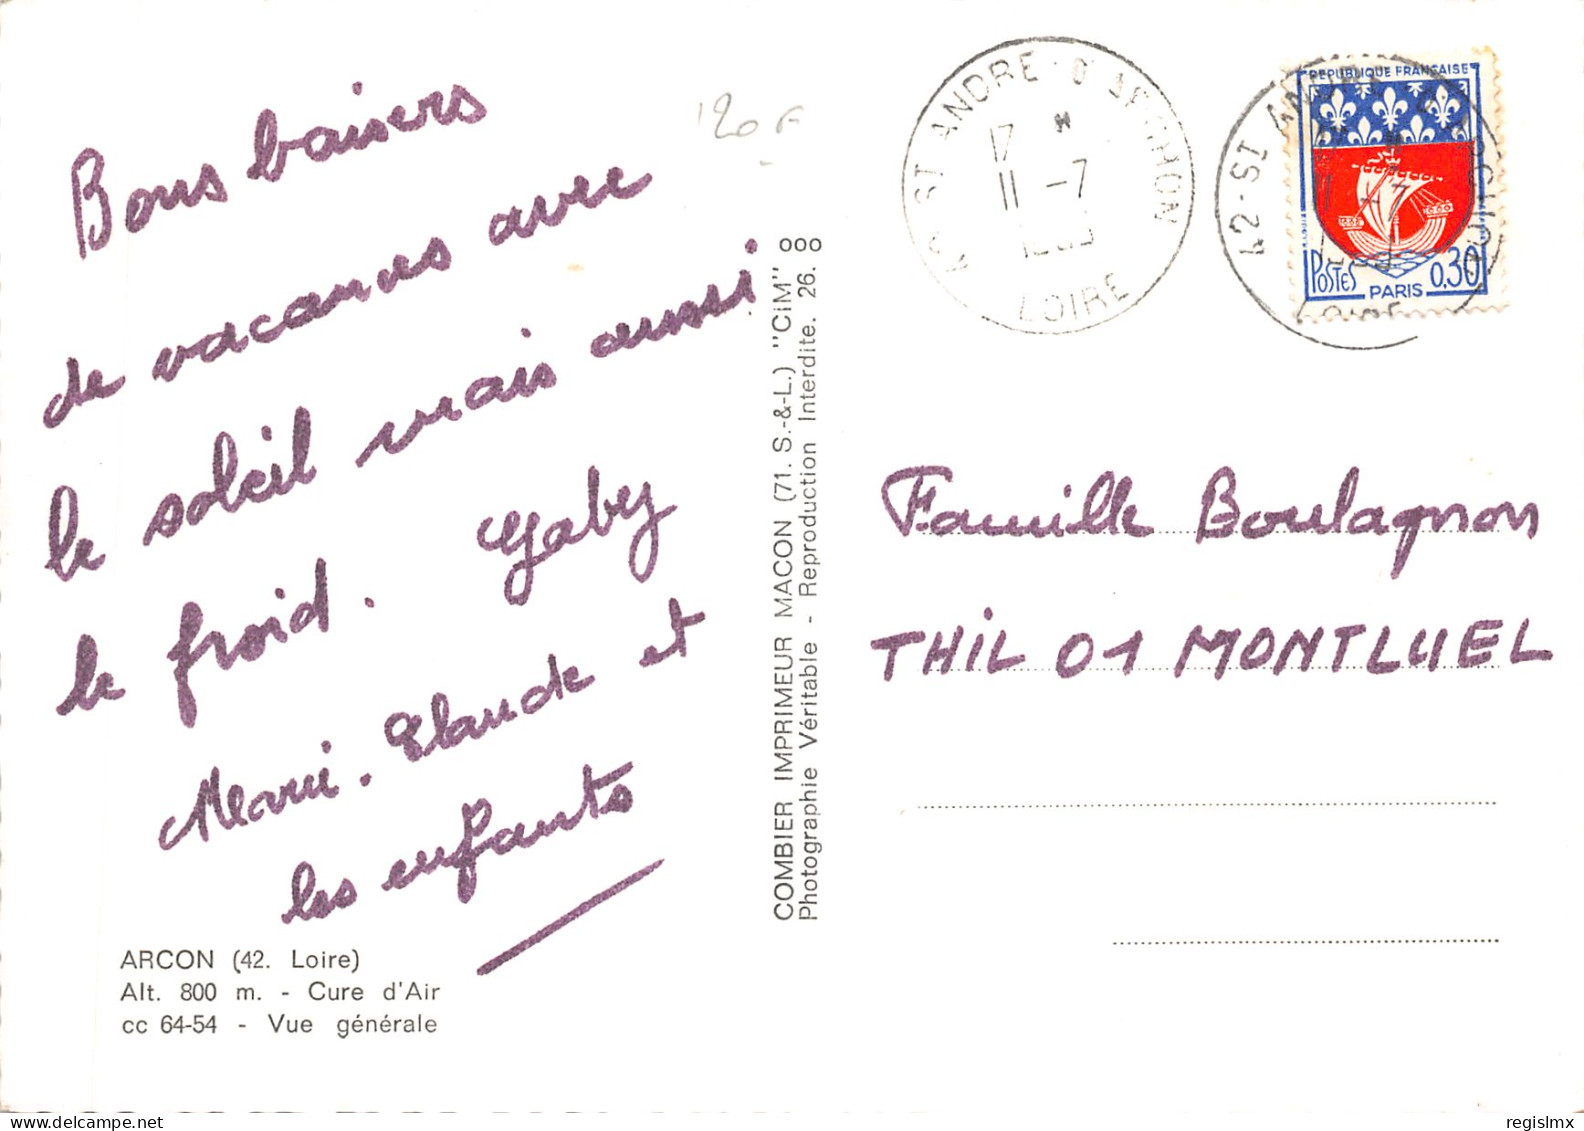 Bons baisers
de vacances avec
le soleil mais aussi
le froid. Gaby
Marie-Claude et
les enfants
ARCON (42. Loire)
Alt. 800 m. - Cure d'Air
cc 64-54 - Vue générale
COMBIER IMPRIMEUR MACON (71. S.-&-L.) "CiM" ooo
Photographie Véritable - Reproduction Interdite. 26.
120 F
ST ANDRE D'APCHON
17 *
11 -7
LOIRE
42-ST ANDRE
REPUBLIQUE FRANÇAISE
POSTES 0,30
PARIS
Famille Boulagnon
THIL 01 MONTLUEL
regislmx